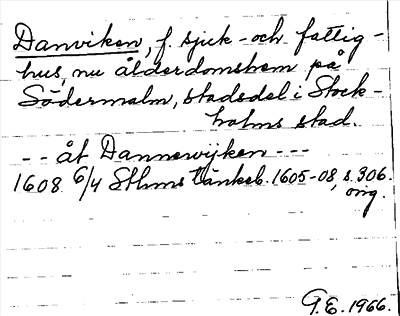 Danviken, f. sjuk- och fattig-
hus, nu ålderdomshem på
Södermalm, stadsdel i Stock-
holms stad.
-- åt Dannewijken ---
1608 6/4 Sthms tänkeb. 1605-08, s. 306.
orig.
G.E. 1966.